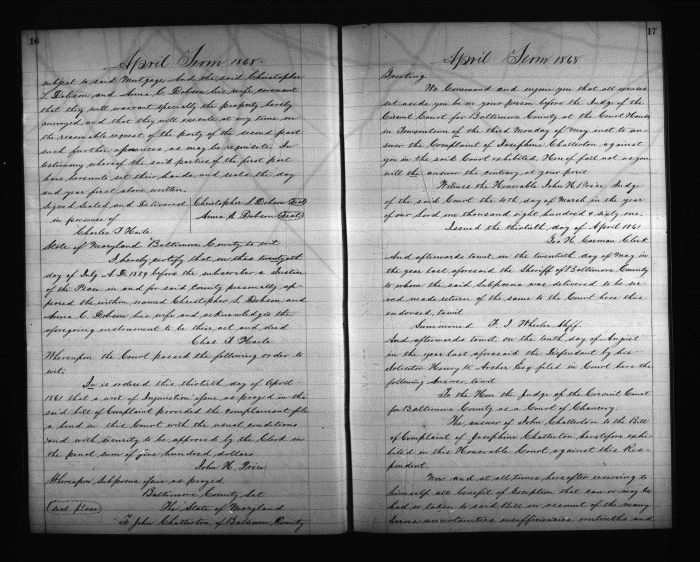 16
April Term 1868
subject to said Mortgage, And the said Christopher
L. Dobson and Anna C. Dobson his wife covenant
that they will warrant specially the property hereby
conveyed and that they will execute at any time on
the reasonable request of the party of the second part
such further assurances as may be requisite. In
testimony whereof the said parties of the first part
have hereunto set their hands and seals the day
and year first above written.
Signed Sealed and Delivered Christopher L Dobson (Seal)
in presence of Anna Dobson (Seal)
Charles T Haile
State of Maryland Baltimore County to wit
I hereby certify that on this twentyth
day of July A.D. 1859 before the subscriber a Justice
of the Peace in and for said County personally ap-
peared the within named Christopher L Dobson and
Anna C. Dobson his wife and acknowledge the
aforegoing instrument to be their act and deed
Chas T Haile
Whereupon the Court passed the following order to
wit:
It is ordered this thirtieth day of April
1861 that a writ of Injunction issue as prayed in the
said bill of Complaint provided the complainant file
a bond in this Court with the usual conditions
and with security to be approved by the Clerk in
the penal sum of five hundred dollars
John H. Price
Whereupon Subpoena issue as prayed
Baltimore County Sct
(seal place) The State of Maryland
To John Chatterton of Baltimore County
17
April Term 1868
Greeting
We Command and enjoin you that all excuses
set aside you be in your person before the Judge of the
Circuit Court for Baltimore County at the Court House
in Towsontown of the third Monday of May inst to an-
swer the Complaint of Josephine Chatterton against
you in the said Court exhibited. Hereof fail not as you
will the answer the contrary at your peril
Witness the Honorable John H. Price Judge
of the said Court the 4th day of March in the year
of our Lord one thousand eight hundred & sixty one.
Issued the thirtieth day of April 1861
Geo H. Carman Clerk
And afterwards towit, on the twentieth day of May in
the year last aforesaid the Sheriff of Baltimore County
to whom the said Subpoena was delivered to be ser-
ved made return of the same to the Court here thus
endorsed, towit
Summoned F. J. Wheeler Shff.
And afterwards towit, on the tenth day of August
in the year last aforesaid the Defendant by his
Solicitor Henry W. Archer Esq filed in Court here the
following Answer, towit
To the Hon the Judge of the Circuit Court
for Baltimore County as a Court of Chancery
The answer of John Chatterton to the Bill
of Complaint of Josephine Chatterton heretofore exhi-
bited in this Honorable Court against this Res-
pondent.
Now and at all times hereafter reserving to
himself all benefit of Exception that can or may be
had or taken to said Bill on account of the many
errors uncertainties insufficiencies untruths and